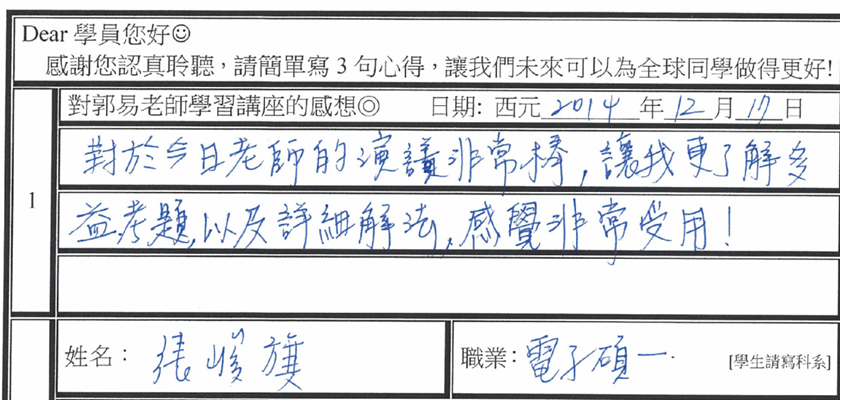 Dear 學員您好☺
感謝您認真聆聽，請簡單寫 3 句心得，讓我們未來可以為全球同學做得更好!
對郭易老師學習講座的感想◎ 日期: 西元 2014 年 12 月 17 日
1
對於今日老師的演講非常棒，讓我更了解多
益考題,以及詳細解法,感覺非常受用!
姓名： 張峻旗 職業： 電子碩一. [學生請寫科系]